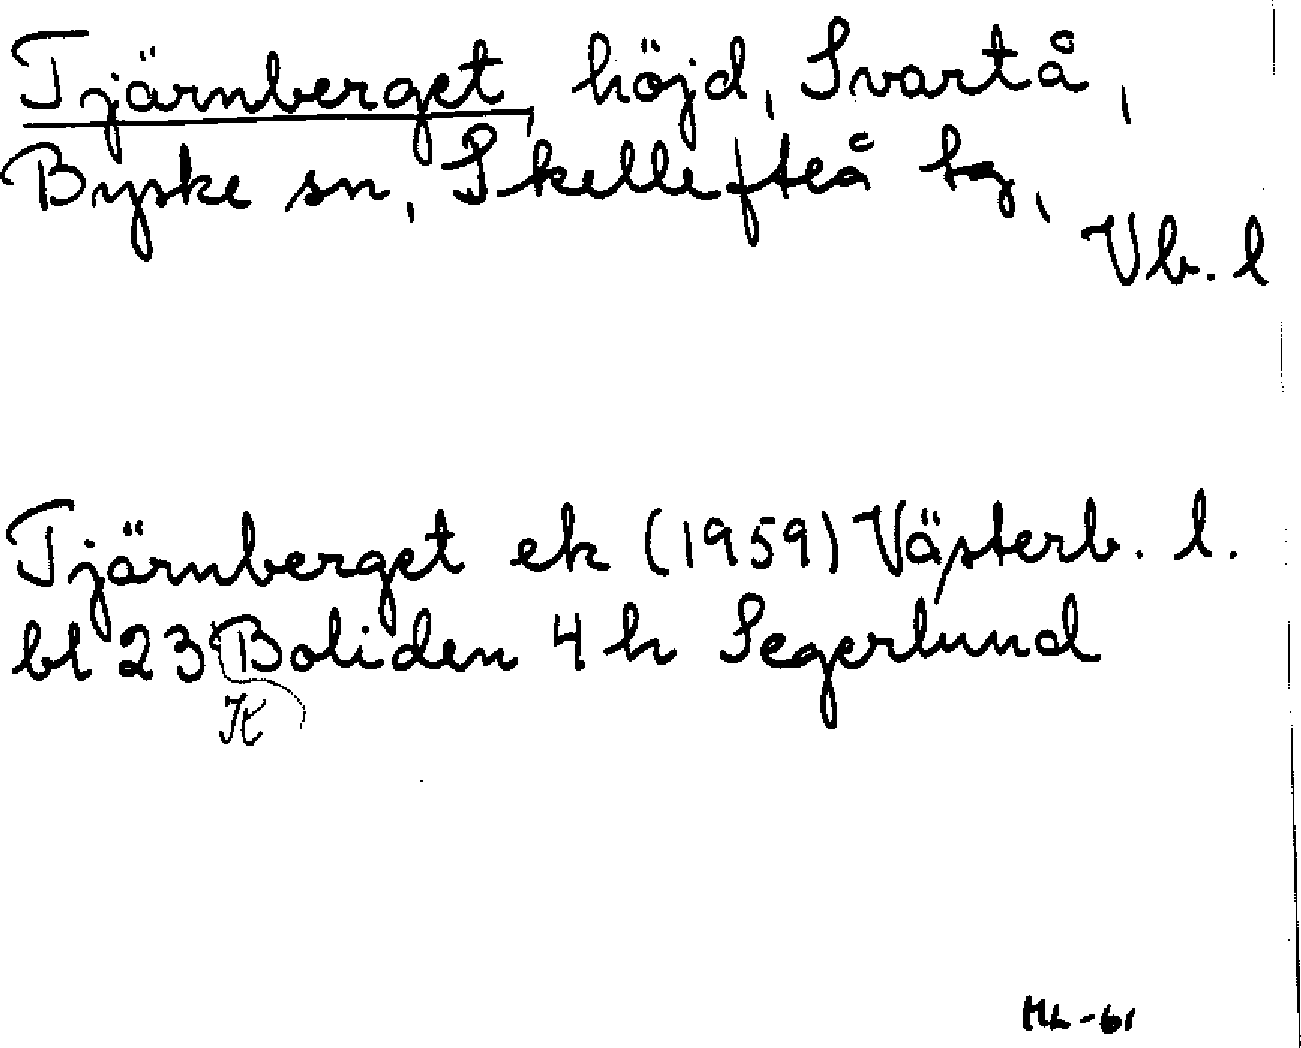 Tjärnberget, höjd, Svartå,
Byske sn, Skellefteå tg,
Vb. l
Tjärnberget ek (1959) Västerb. l.
bl 23 Boliden 4 h Segerlund
K
HL-61